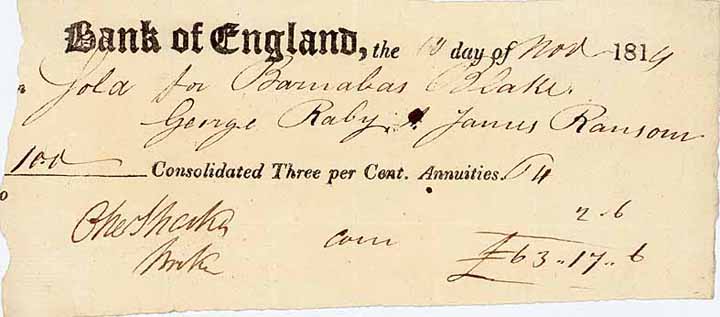 Bank of England, the day of Nov 1814
Sold for Barnabas Blake
George Raby & James Ransom
100 Consolidated Three per Cent. Annuities. 64
2 6
com £63 " 17 " 6